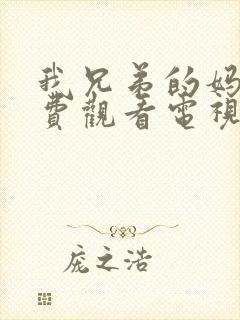 我兄弟的妈
費觀看電視
庞之浩